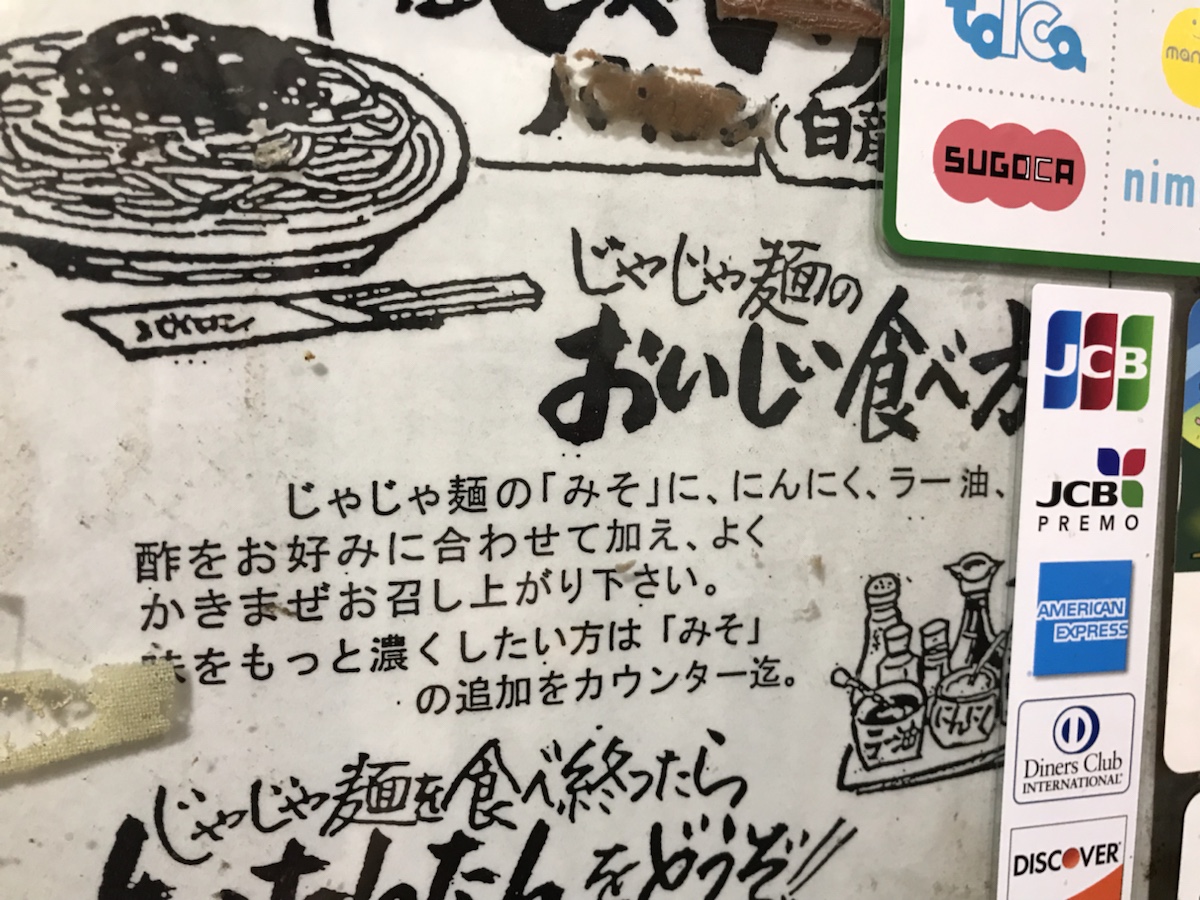 白龍
toica
SUGOCA
nim
パイロン
じゃじゃ麺の
おいしい食べ方
じゃじゃ麺の「みそ」に、にんにく、ラー油、
酢をお好みに合わせて加え、よく
かきまぜお召し上がり下さい。
味をもっと濃くしたい方は「みそ」
の追加をカウンター迄。
ラー油
にんにく
じゃじゃ麺を食べ終ったら
ちーたんたんをどうぞ!!
JCB
JCB
PREMO
AMERICAN
EXPRESS
Diners Club
INTERNATIONAL
DISCOVER